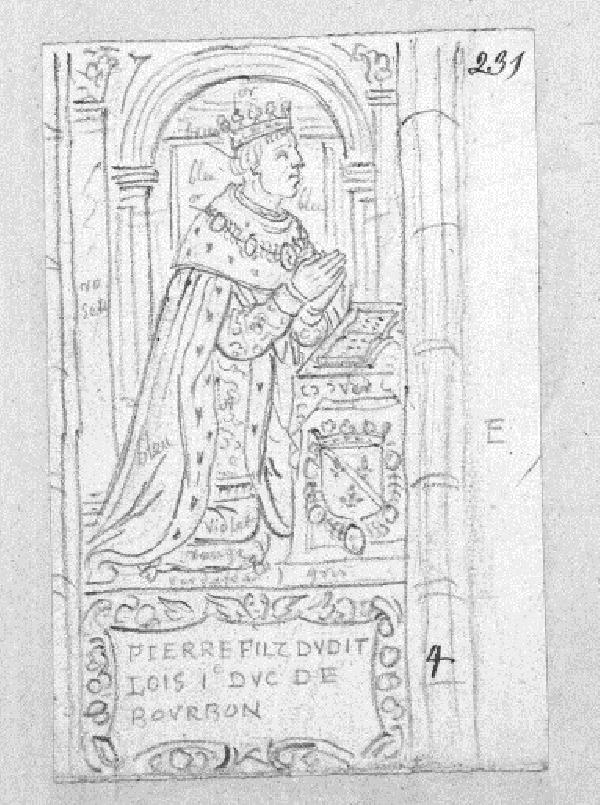 231
or
bleu
or
bleu
bleu
vert
bleu
E
violet
rouge
gris
4
PIERRE FILZ DVDIT
LOIS I^e DVC DE
BOVRBON